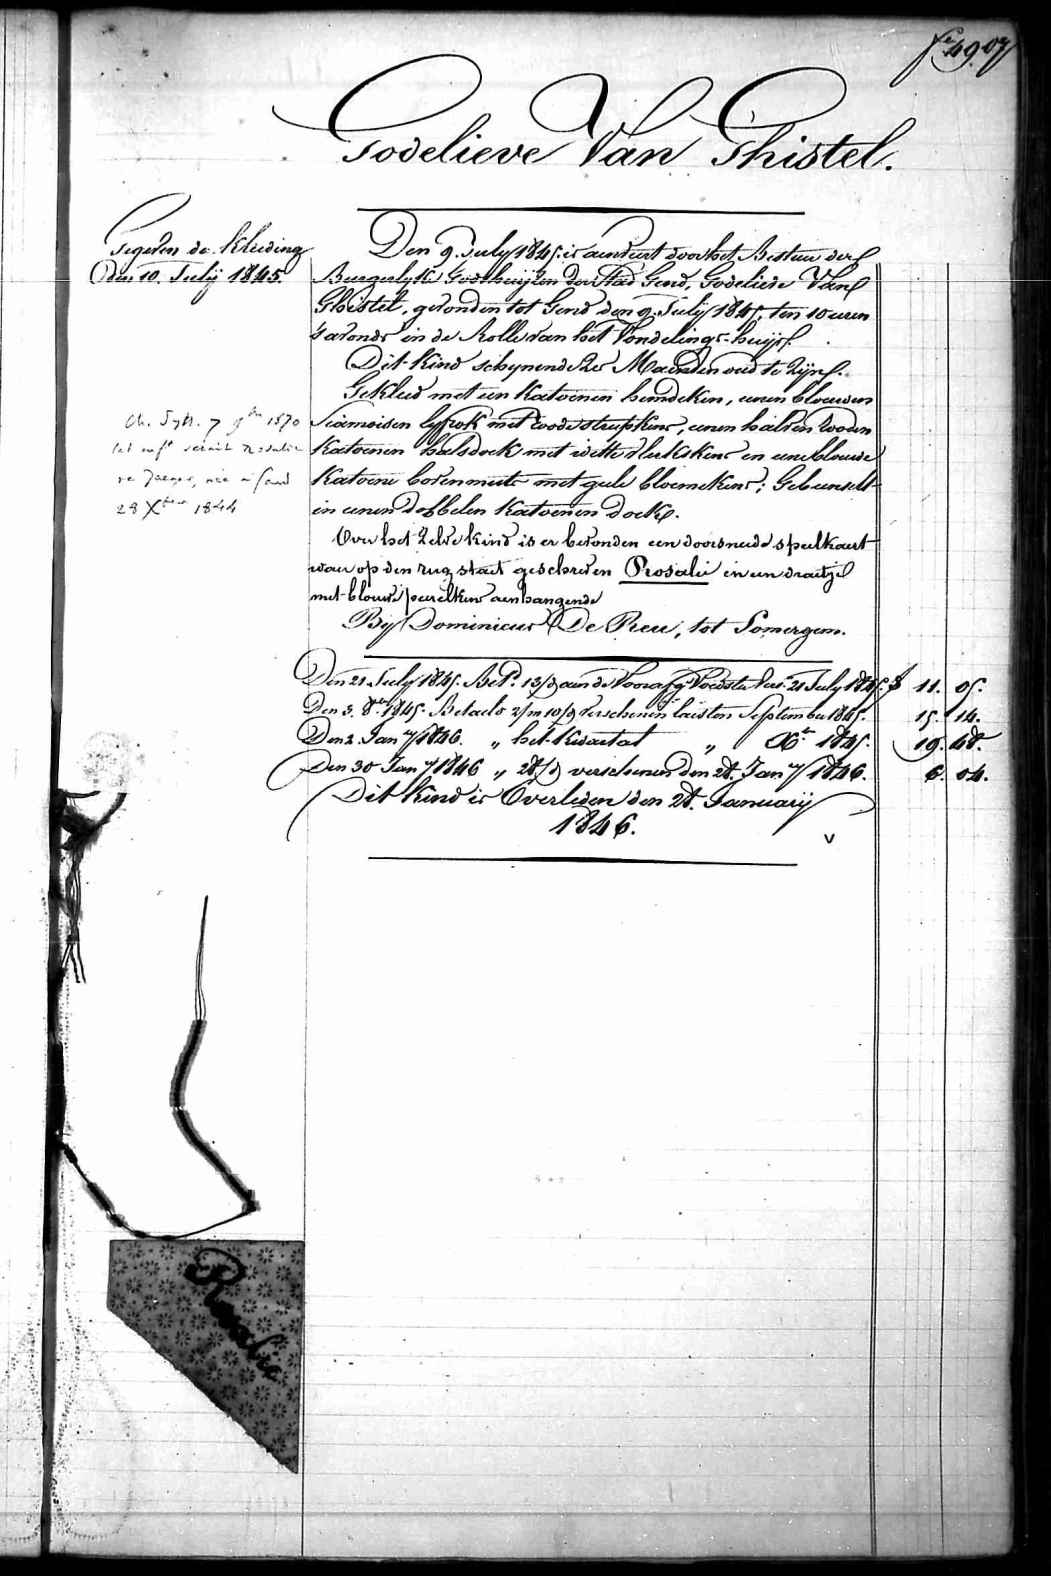 fo 49. 07
Godelieve Van Ghistel.
Gegeven de kleeding
Den 10. July 1845.
Den 9. July 1845. is aenveert door het Bestuer der
Burgerlyke Godshuyzen der Stad Gend, Godelieve Van
Ghistel, gevonden tot Gend den 9. July 1845, ten 10 uren
's avonds in de Rolle van het Vondelings-huys.
Dit kind schynende 2 Maenden oud te Zyn.
Gekleed met een katoenen hemdeken, eenen blouwen
Siamoisen lyfrok met roode streepkens, eenen halven rooden
katoenen halsdoek met witte vlekskens en eene blouwe
katoene bovenmuts met gele bloemekens; Gebunselt
in eenen dobbelen katoenen doek.
Over het Zelve kind is er bevonden een doorsnede speelkaert
waer op den rug staet geschreven Rosalie en een draetje
met blouwe peerelkens aenhangende
By Dominicus De Reu, tot Somergem.
Ch. 7 9bre 1870
cet enft serait Rosalie
de Jaeger, née a Gand
28 Xbre 1844
Den 21 July 1845. Betd. 13/d aen de Voedster Vers. 21 July 1845. f 11. 05.
Den 3. 8e 1845. Betaelt 2/m 10/d verschenen laesten September 1845. 15. 14.
Den 2. Jany 1846. „ het kwartael „ Xbr 1845. 19. 48.
Den 30 Jany 1846 „ 28/d verschenen den 28. Jany 1846. 6. 04.
Dit kind is Overleden den 28. January
1846.
v
Rosalie